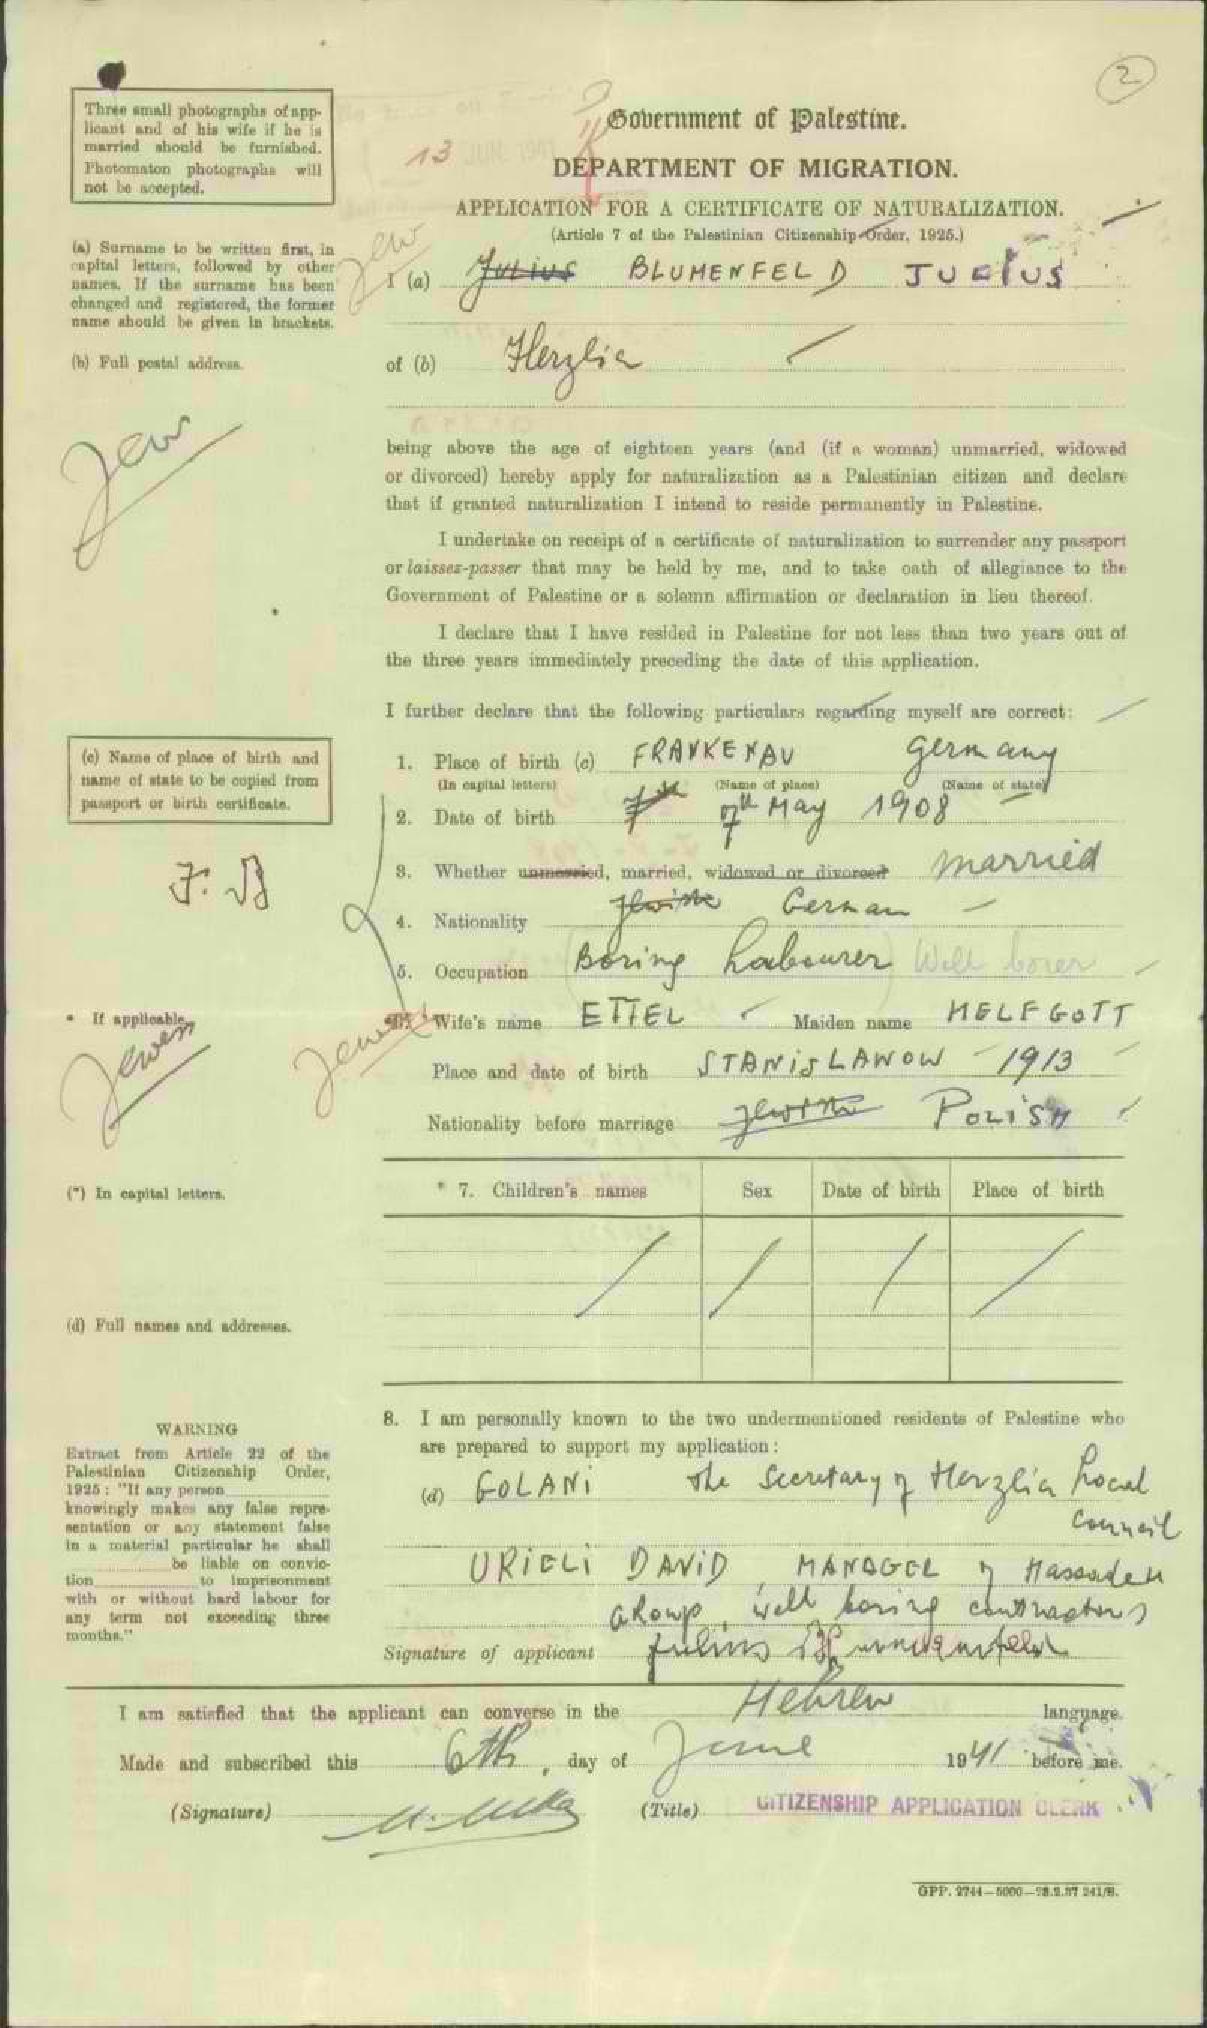 2
Three small photographs of app-
licant and of his wife if he is
married should be furnished.
Photomaton photographs will
not be accepted.
13 JUN. 1941
Government of Palestine.
DEPARTMENT OF MIGRATION.
APPLICATION FOR A CERTIFICATE OF NATURALIZATION.
(Article 7 of the Palestinian Citizenship Order, 1925.)
(a) Surname to be written first, in
capital letters, followed by other
names. If the surname has been
changed and registered, the former
name should be given in brackets.
Jew
I (a) Julius BLUMENFELD JULIUS
(b) Full postal address.
of (b) Herzlia
Jew
being above the age of eighteen years (and (if a woman) unmarried, widowed
or divorced) hereby apply for naturalization as a Palestinian citizen and declare
that if granted naturalization I intend to reside permanently in Palestine.
I undertake on receipt of a certificate of naturalization to surrender any passport
or laissez-passer that may be held by me, and to take oath of allegiance to the
Government of Palestine or a solemn affirmation or declaration in lieu thereof.
I declare that I have resided in Palestine for not less than two years out of
the three years immediately preceding the date of this application.
I further declare that the following particulars regarding myself are correct:
(c) Name of place of birth and
name of state to be copied from
passport or birth certificate.
1. Place of birth (c) FRANKENAU Germany
(In capital letters) (Name of place) (Name of state)
2. Date of birth 7th 7th May 1908
3. Whether unmarried, married, widowed or divorced married
J. B
4. Nationality Jewish German
5. Occupation Boring Labourer Well borer
* If applicable.
Jewess
Jewess
*6. Wife's name ETTEL Maiden name HELFGOTT
Place and date of birth STANISLAWOW 1913
Nationality before marriage Jewish POLISH
(*) In capital letters.
* 7. Children's names Sex Date of birth Place of birth
(d) Full names and addresses.
8. I am personally known to the two undermentioned residents of Palestine who
are prepared to support my application:
(d) GOLANI the Secretary of Herzlia Local
Council
URIELI DAVID, MANAGER of Hassadeh
Group, well boring contractors
Signature of applicant Julius Blumenfeld
WARNING
Extract from Article 22 of the
Palestinian Citizenship Order,
1925: "If any person
knowingly makes any false repre-
sentation or any statement false
in a material particular he shall
be liable on convic-
tion to imprisonment
with or without hard labour for
any term not exceeding three
months."
I am satisfied that the applicant can converse in the Hebrew language.
Made and subscribed this 6th, day of June 1941 before me.
(Signature) (Title) CITIZENSHIP APPLICATION CLERK
GPP. 2744—5000—28.2.37 241/B.